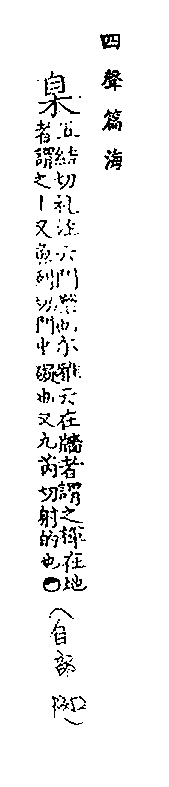 四聲篇海
臬
五結切礼注云門橜也尒雅云在牆者謂之楎在地
者謂之丨又魚列切門中礙也又九芮切射的也
(自部